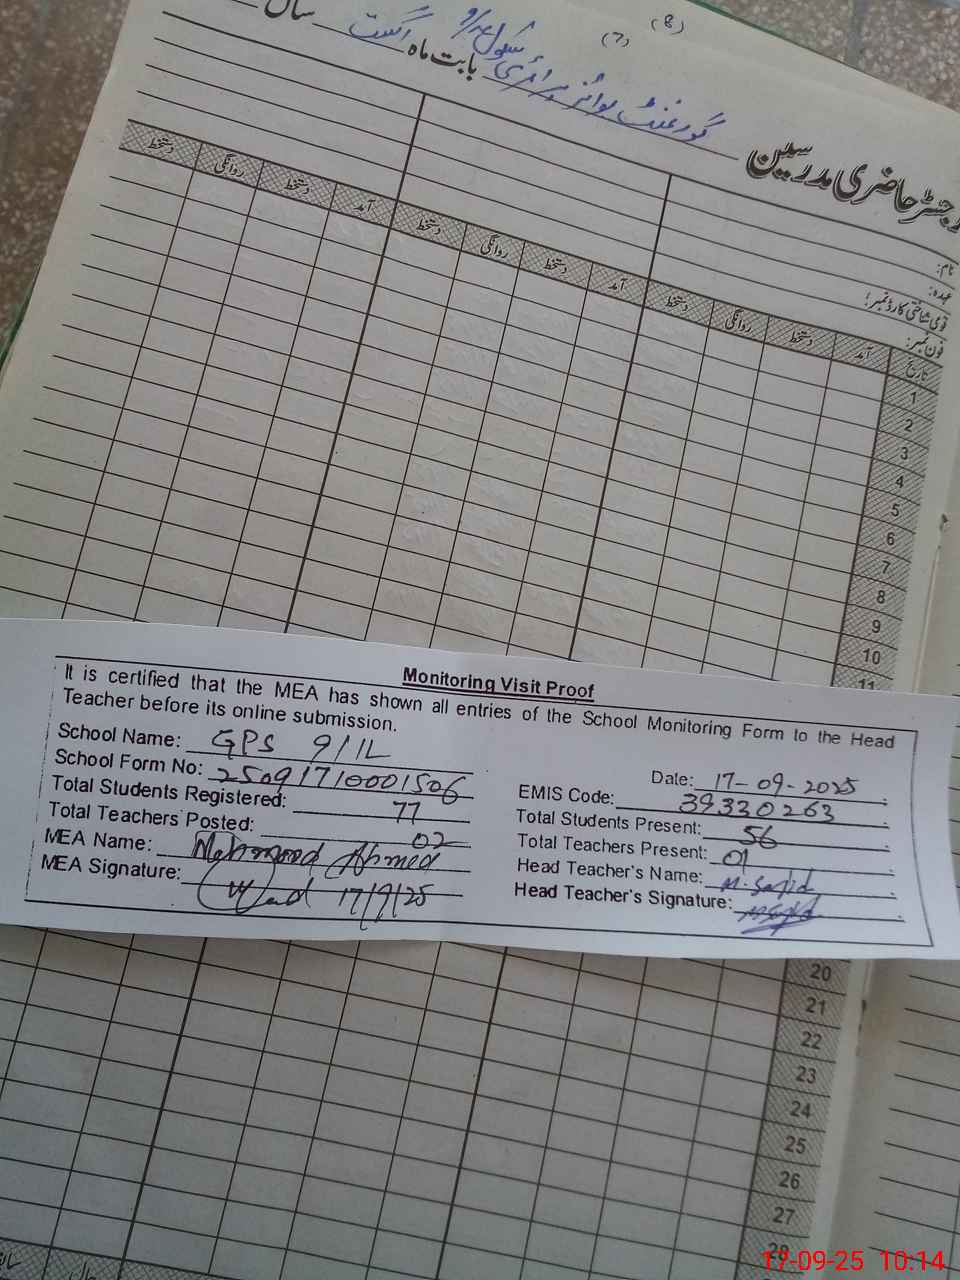 (8)
(7)
رجسٹر حاضری مدرسین گورنمنٹ بوائز پرائمری سکول 9/1L بابت ماہ اگست سال
نام:
عہدہ:
قومی شناختی کارڈ نمبر:
فون نمبر:
تاریخ آمد دستخط روانگی دستخط آمد دستخط روانگی دستخط آمد دستخط روانگی دستخط
1
2
3
4
5
6
7
8
9
10
11
Monitoring Visit Proof
It is certified that the MEA has shown all entries of the School Monitoring Form to the Head
Teacher before its online submission.
School Name: GPS 9/1L
Date: 17-09-2025
School Form No: 25091710001506
EMIS Code: 39330263
Total Students Registered: 77
Total Students Present: 56
Total Teachers Posted: 02
Total Teachers Present: 01
MEA Name: Mehmood Ahmed
Head Teacher's Name: M. Sajid
MEA Signature: 17/9/25
Head Teacher's Signature:
20
21
22
23
24
25
26
27
28
17-09-25 10:14